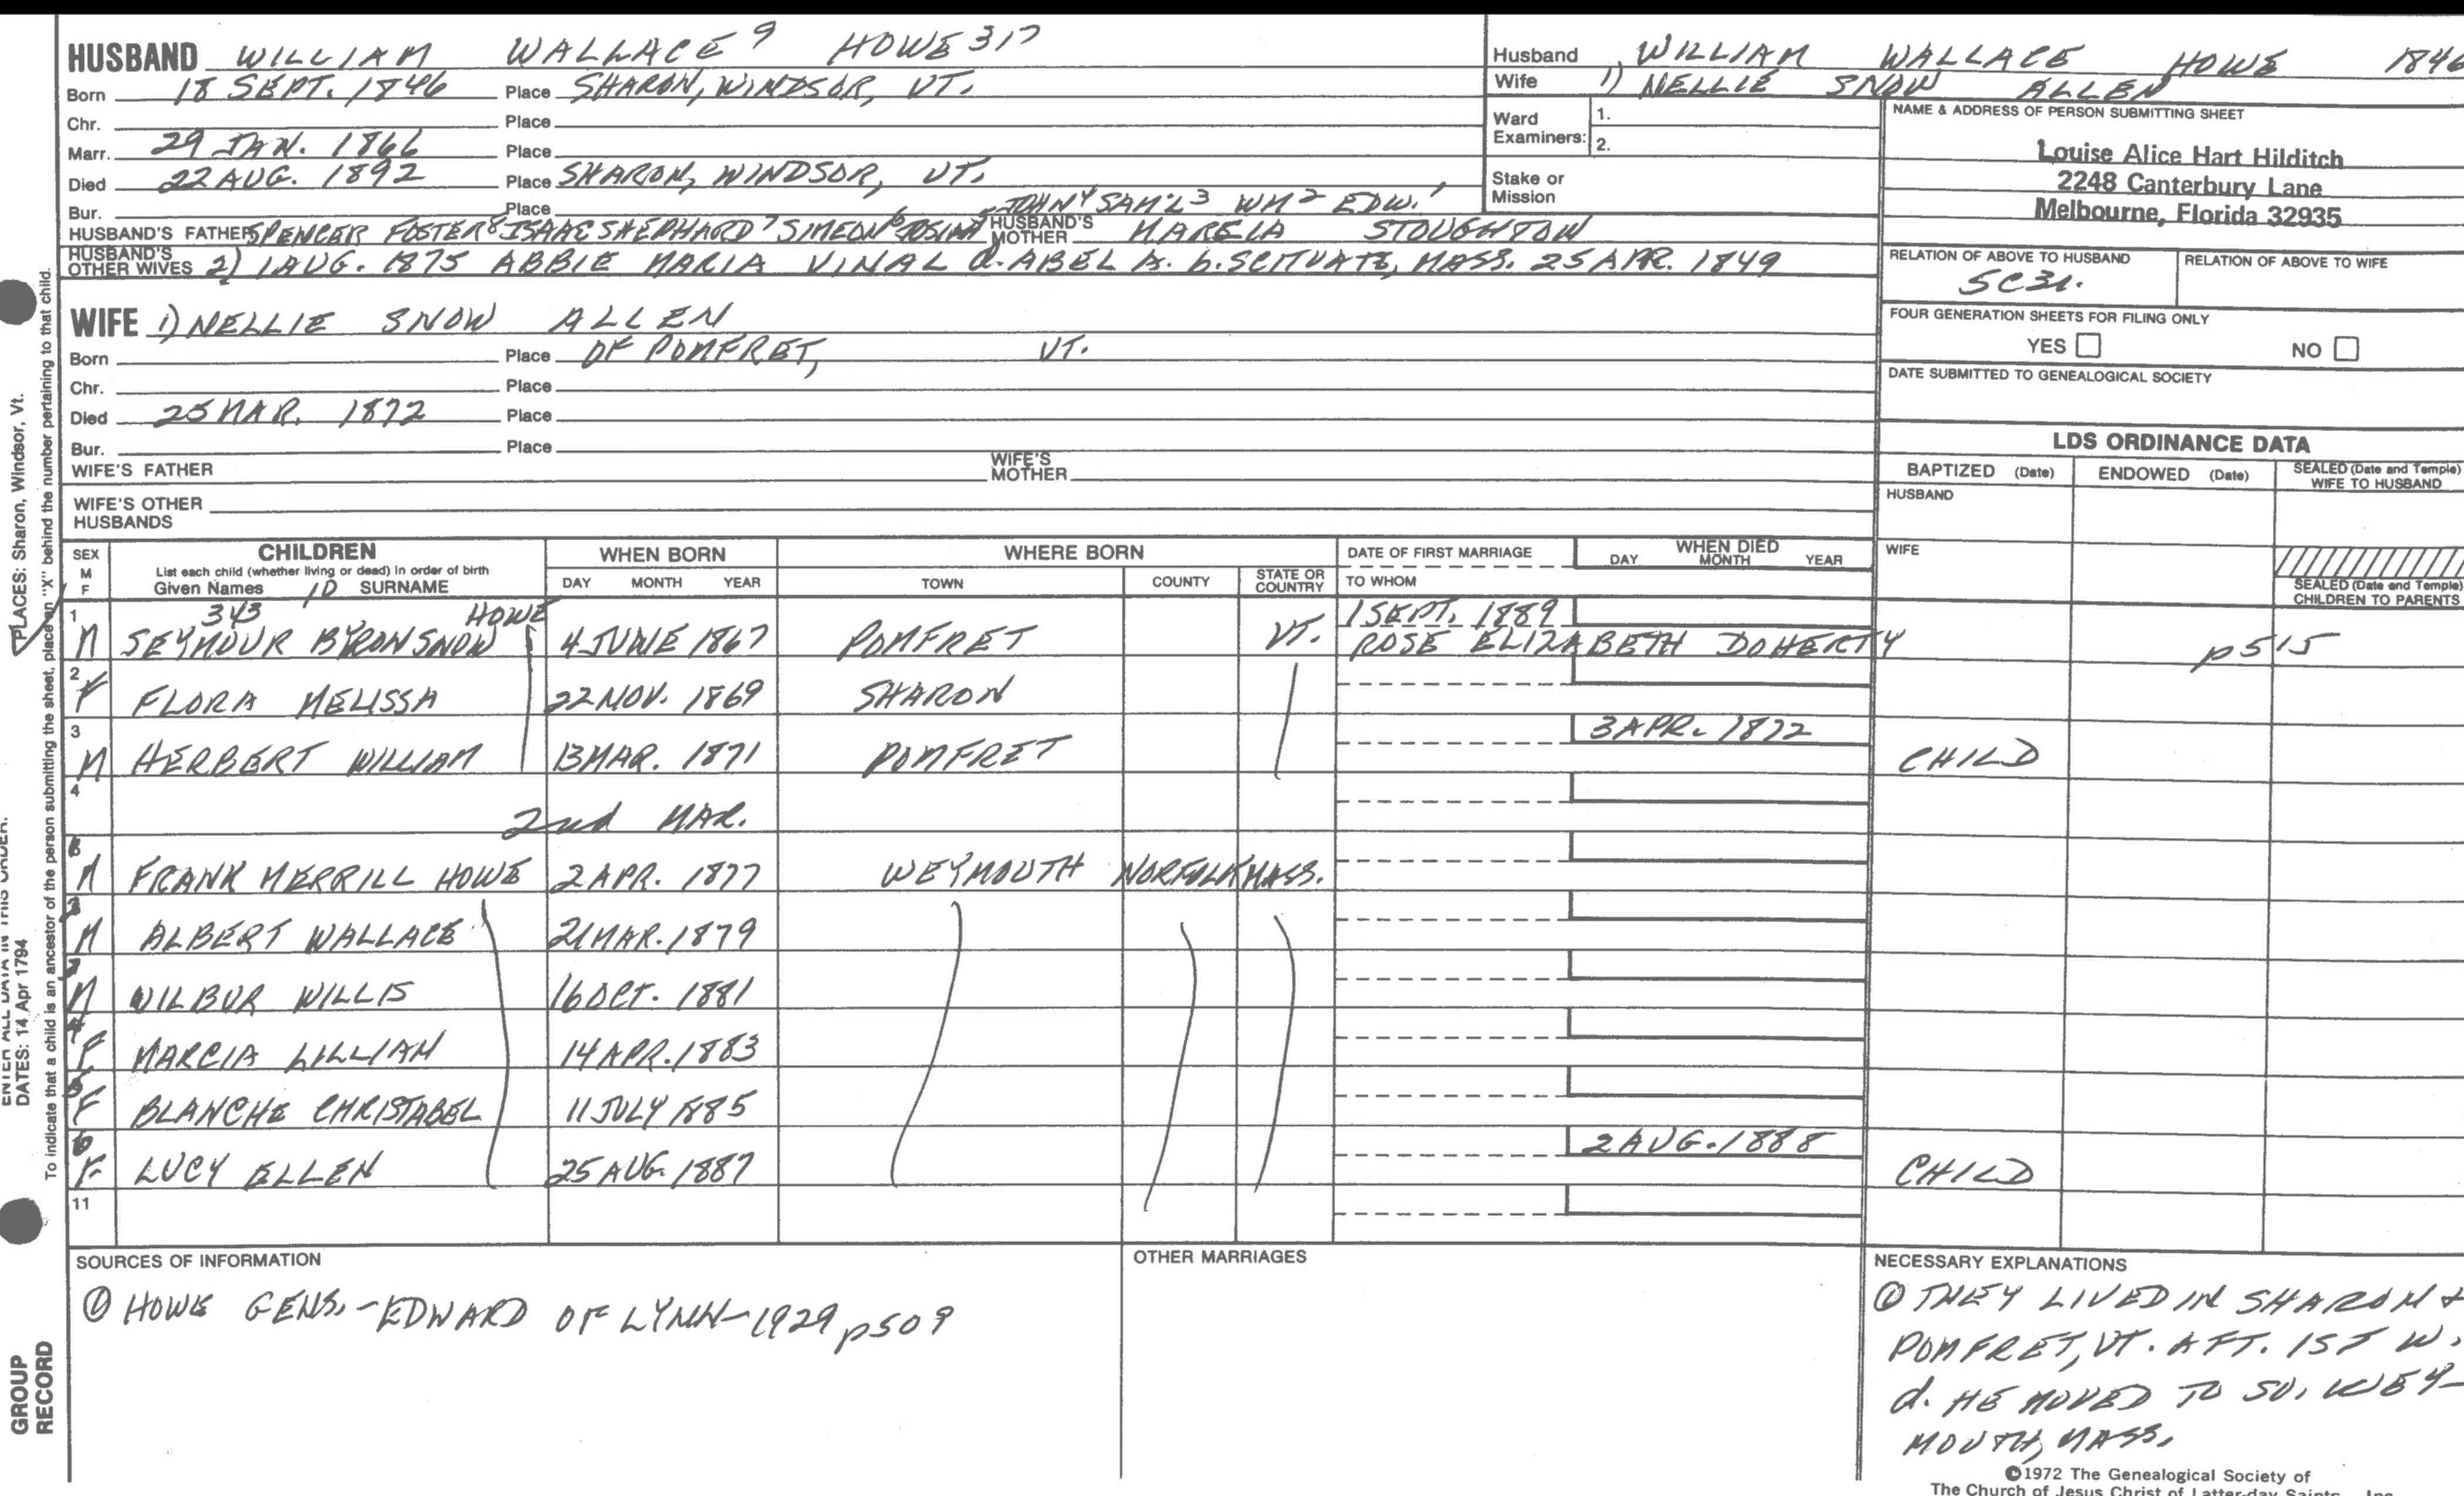 HUSBAND WILLIAM WALLACE 9 HOWE 317
Born 18 SEPT. 1846 Place SHARON, WINDSOR, VT.
Chr. Place
Marr. 29 JAN. 1866 Place
Died 22 AUG. 1892 Place SHARON, WINDSOR, VT.
Bur. Place JOHN 4 SAM'L 3 WM 2 EDW. 1
HUSBAND'S FATHER SPENCER FOSTER 8 ISAAC SHEPHARD 7 SIMEON 6 HUSBAND'S MOTHER MARELA STOUGHTON
HUSBAND'S OTHER WIVES 2) 1 AUG. 1875 ABBIE MARIA VINAL d. ABEL A. b. SCITUATE, MASS. 25 APR. 1849
WIFE 1) NELLIE SNOW ALLEN
Born Place OF POMFRET, VT.
Chr. Place
Died 25 MAR. 1872 Place
Bur. Place
WIFE'S FATHER WIFE'S MOTHER
WIFE'S OTHER HUSBANDS
Husband WILLIAM WALLACE HOWE 1846
Wife 1) NELLIE SNOW ALLEN
Ward Examiners: 1.
2.
Stake or Mission
NAME & ADDRESS OF PERSON SUBMITTING SHEET
Louise Alice Hart Hilditch
2248 Canterbury Lane
Melbourne, Florida 32935
RELATION OF ABOVE TO HUSBAND RELATION OF ABOVE TO WIFE
5C3r.
FOUR GENERATION SHEETS FOR FILING ONLY
YES NO
DATE SUBMITTED TO GENEALOGICAL SOCIETY
LDS ORDINANCE DATA
BAPTIZED (Date) ENDOWED (Date) SEALED (Date and Temple) WIFE TO HUSBAND
HUSBAND
WIFE
SEALED (Date and Temple) CHILDREN TO PARENTS
SEX M F CHILDREN WHEN BORN WHERE BORN DATE OF FIRST MARRIAGE WHEN DIED
List each child (whether living or dead) in order of birth
Given Names 10 SURNAME DAY MONTH YEAR TOWN COUNTY STATE OR COUNTRY TO WHOM DAY MONTH YEAR
1 343 HOWE 1 SEPT. 1889
M SEYMOUR BYRON SNOW 4 JUNE 1867 POMFRET VT. ROSE ELIZABETH DOHERTY p515
2
F FLORA MELISSA 22 NOV. 1869 SHARON
3 3 APR. 1872
M HERBERT WILLIAM 13 MAR. 1871 POMFRET CHILD
4
2nd MAR.
M FRANK MERRILL HOWE 2 APR. 1877 WEYMOUTH NORFOLK MASS.
M ALBERT WALLACE 21 MAR. 1879
M WILBUR WILLIS 16 OCT. 1881
4
F MARCIA LILLIAN 14 APR. 1883
5
F BLANCHE CHRISTABEL 11 JULY 1885
6 2 AUG. 1888
F LUCY ELLEN 25 AUG. 1887 CHILD
11
SOURCES OF INFORMATION
① HOWE GENS. - EDWARD OF LYNN - 1929 p509
OTHER MARRIAGES
NECESSARY EXPLANATIONS
① THEY LIVED IN SHARON &
POMFRET, VT. AFT. 1ST W.
d. HE MOVED TO SO. WEY-
MOUTH, MASS.
©1972 The Genealogical Society of
The Church of Jesus Christ of Latter-day Saints, Inc.
PLACES: Sharon, Windsor, Vt.
ENTER ALL DATA IN THIS ORDER:
DATES: 14 Apr 1794
To indicate that a child is an ancestor of the person submitting the sheet, place an "X" behind the number pertaining to that child.
GROUP
RECORD